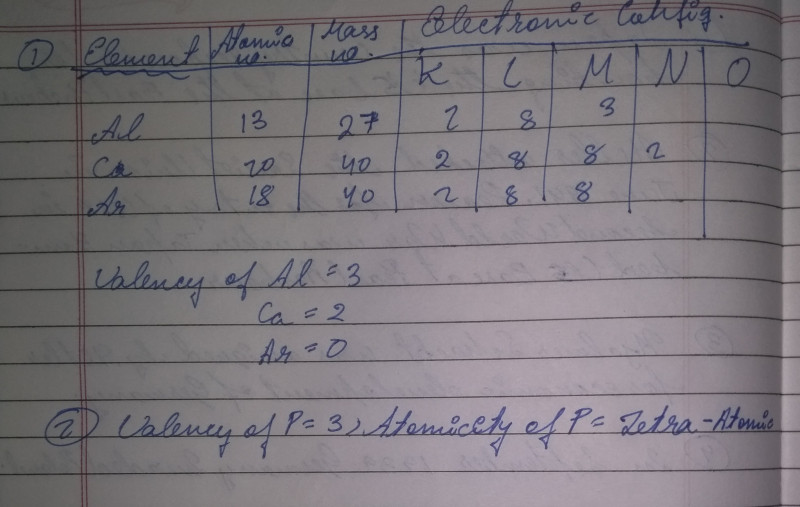 ① Element Atomic no. Mass no. Electronic Config.
K L M N O
Al 13 27 2 8 3
Ca 20 40 2 8 8 2
Ar 18 40 2 8 8
Valency of Al = 3
Ca = 2
Ar = 0
② Valency of P = 3, Atomicity of P = Tetra-Atomic